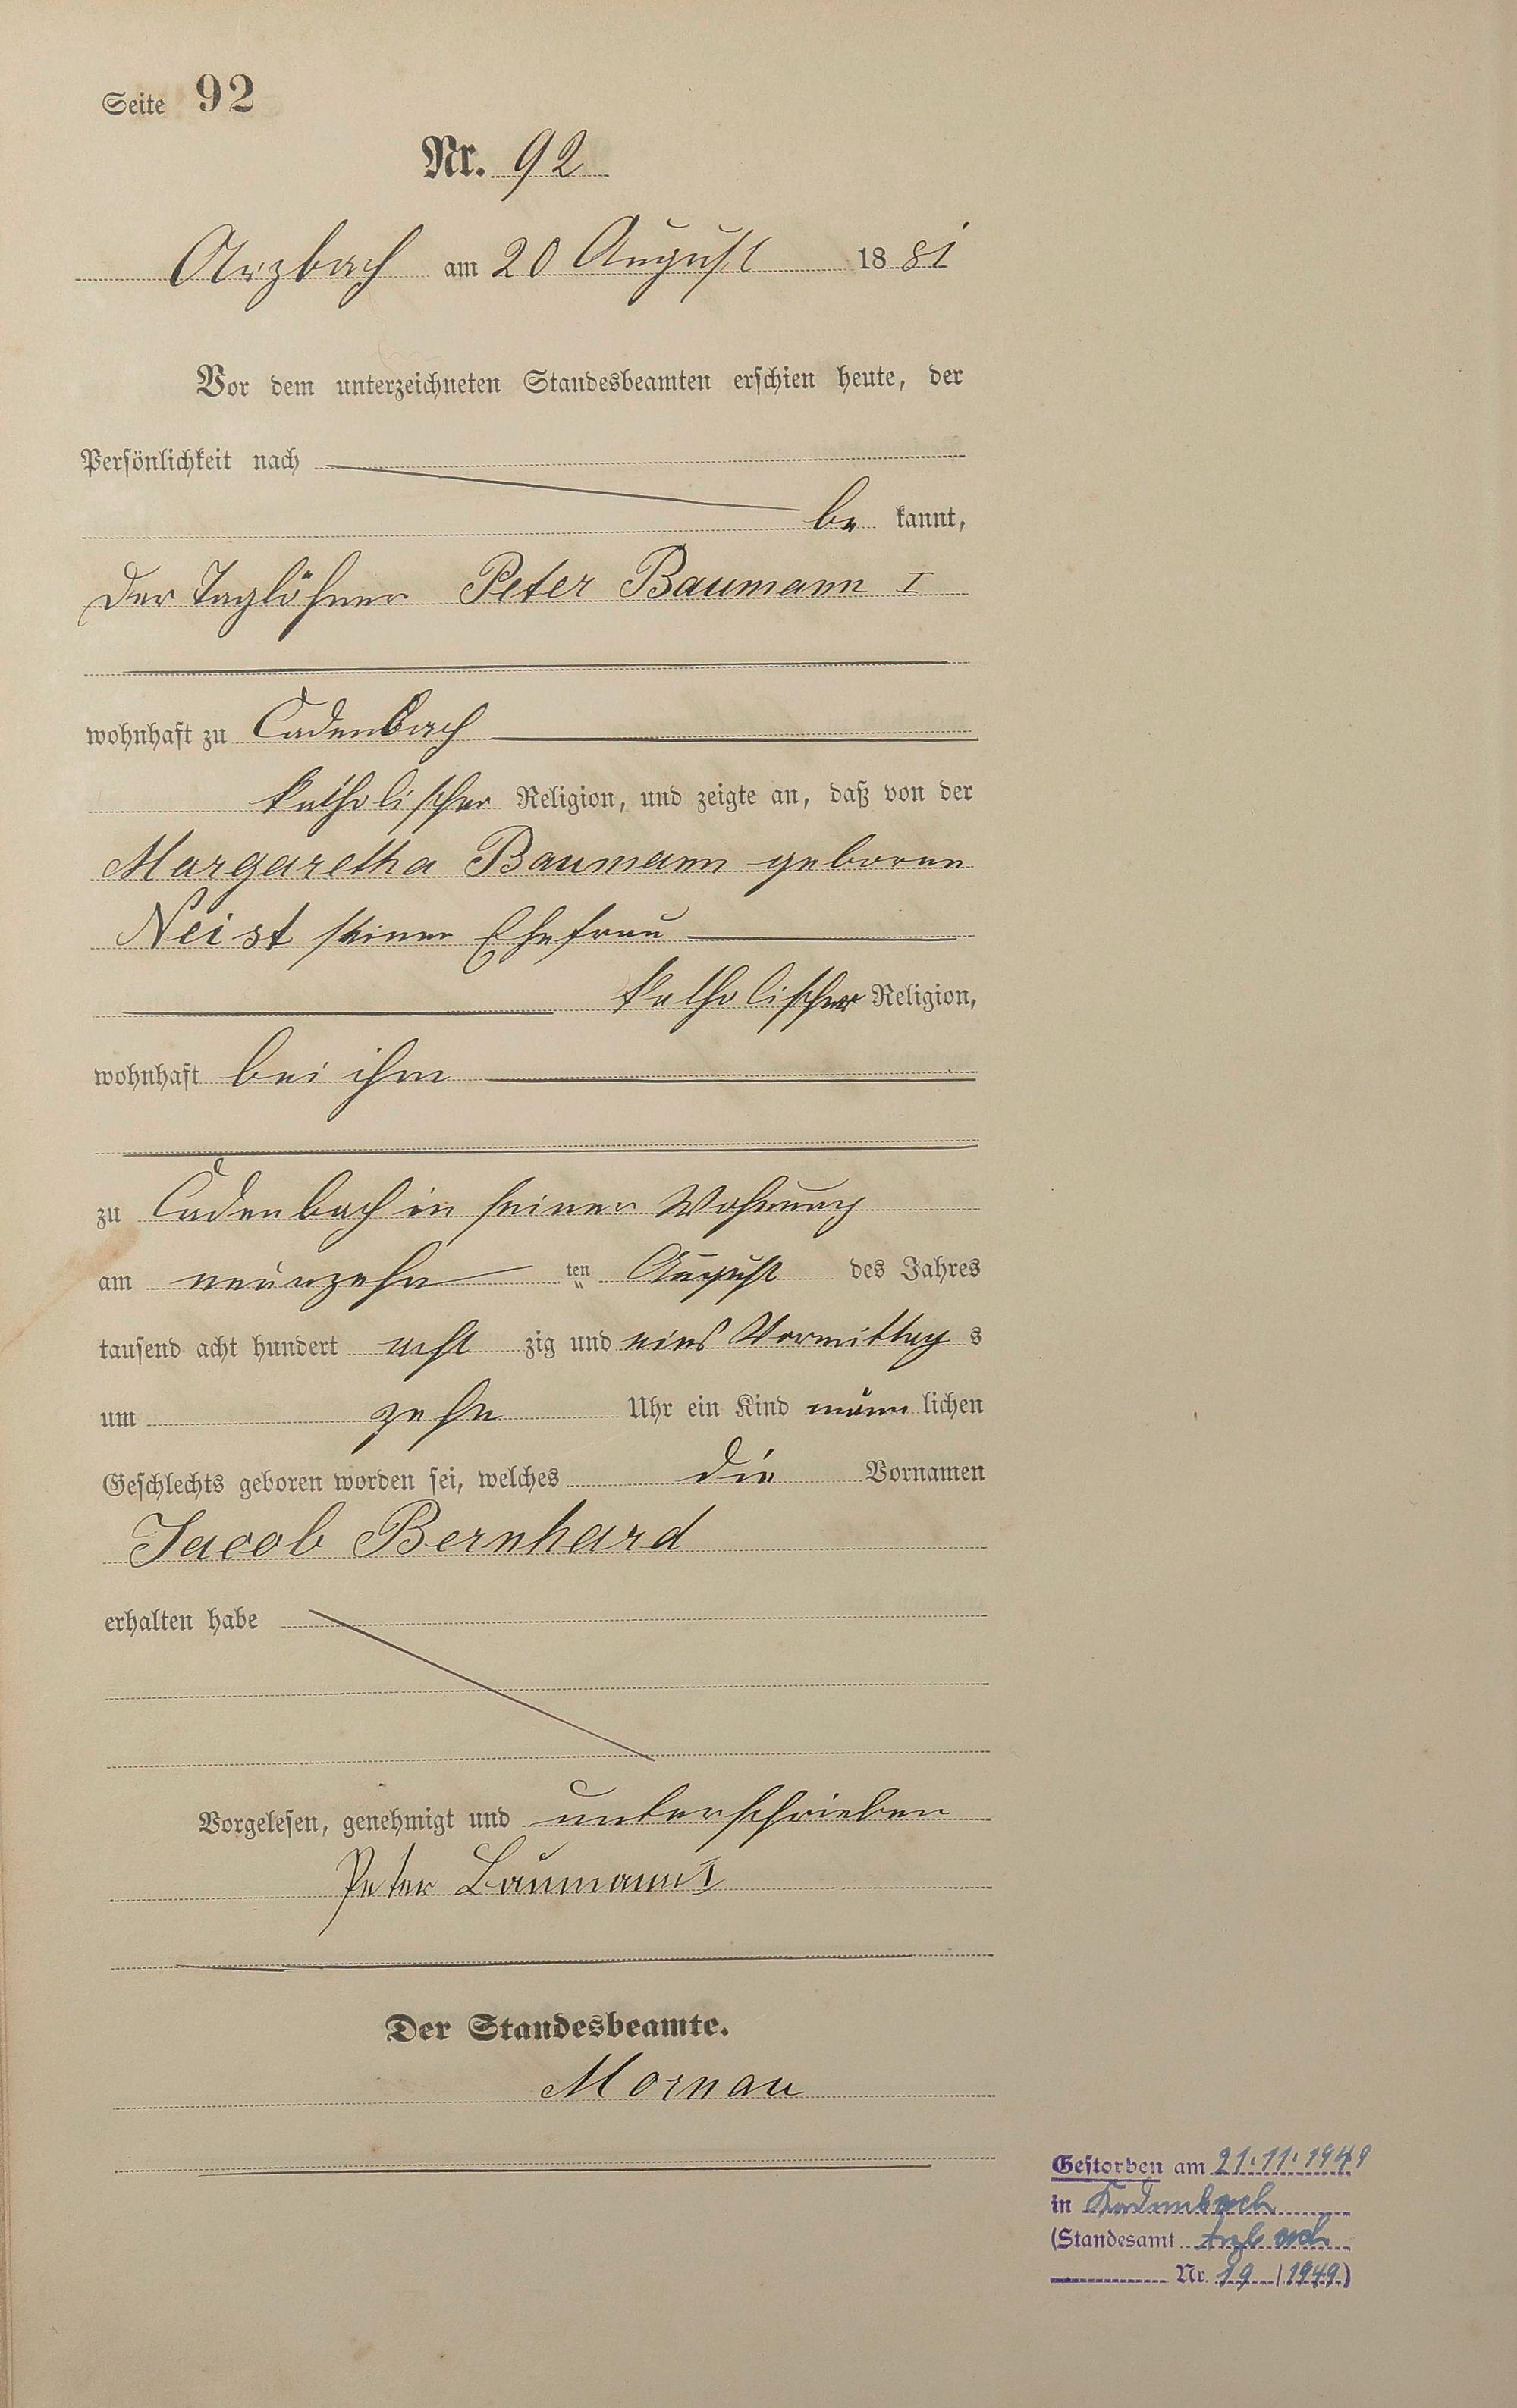 Seite 92
Nr. 92
Arzbach am 20 August 1881
Vor dem unterzeichneten Standesbeamten erschien heute, der
Persönlichkeit nach
be kannt,
der Taglöhner Peter Baumann I
wohnhaft zu Cadenbach
katholischer Religion, und zeigte an, daß von der
Margaretha Baumann geborne
Neist seiner Ehefrau
katholischer Religion,
wohnhaft bei ihm
zu Cadenbach in seiner Wohnung
am neunzehn ten August des Jahres
tausend acht hundert acht zig und eins Vormittag s
um zehn Uhr ein Kind männ lichen
Geschlechts geboren worden sei, welches die Vornamen
Jacob Bernhard
erhalten habe
Vorgelesen, genehmigt und unterschrieben
Peter Baumann I
Der Standesbeamte.
Mornau
Gestorben am 21.11.1949
in Kadenbach
(Standesamt Arzbach
Nr. 19 / 1949)